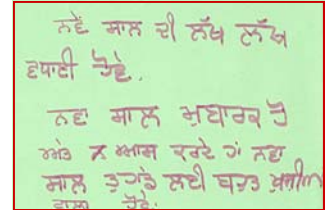 ਨਵੇਂ ਸਾਲ ਦੀ ਲੱਖ ਲੱਖ
ਵਧਾਈ ਹੋਵੇ.
ਨਵਾ ਸਾਲ ਮੁਬਾਰਕ ਹੋ
ਅਤੇ ਆਸ ਕਰਦੇ ਹਾਂ ਨਵਾ
ਸਾਲ ਤੁਹਾਡੇ ਲਈ ਬਹੁਤ ਖੁਸ਼ੀਆਂ
ਵਾਲਾ ਹੋਵੇ.